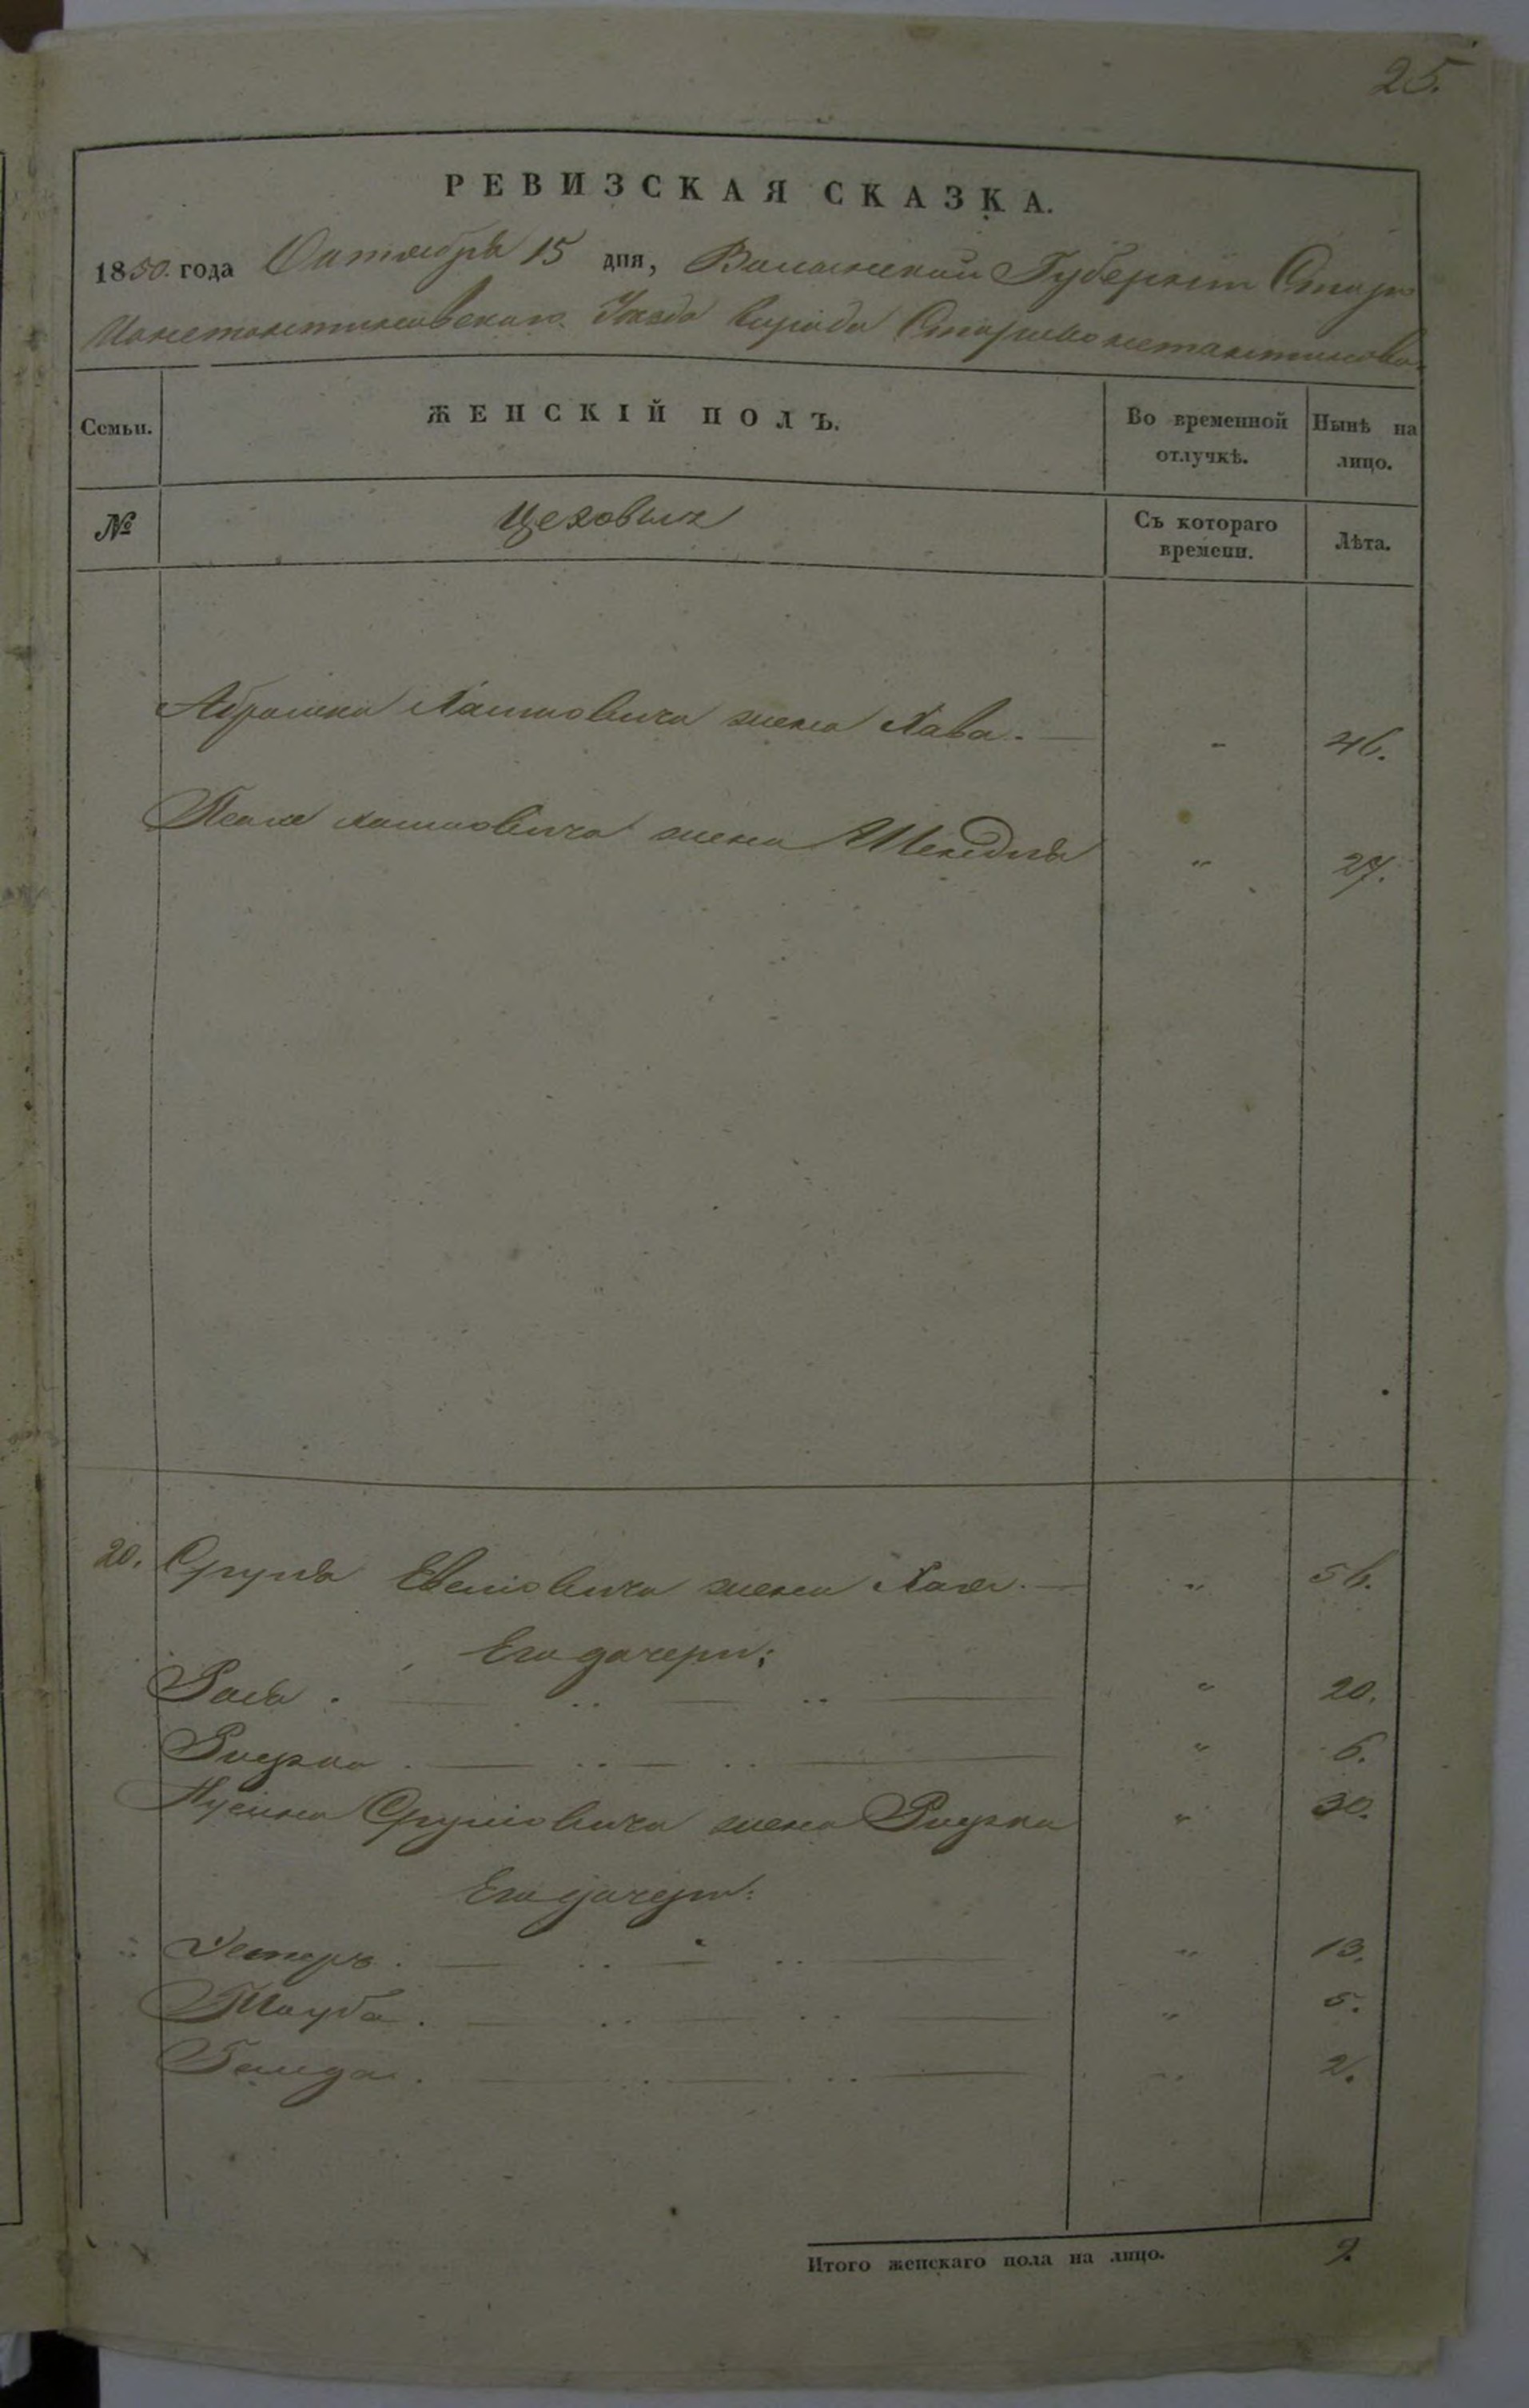 25.
РЕВИЗСКАЯ СКАЗКА.
1850. года Октября 15 дня, Волынской Губернiи Старо
Константиновскаго Уезда города Староконстантинова
Семьи.
ЖЕНСКІЙ ПОЛЪ.
Во временной отлучкѣ.
Нынѣ на лицо.
№
Цеховых
Съ котораго времени.
Лѣта.
Абрамка Хаимовича жена Хава. — - 46.
хаимовича жена Шейндля " 27.
20. Сруля жена Хая. — " 56.
Его дочери:
" 20.
Ривка . — .. — .. — " 6.
Сруліовича жена Ривка " 30.
Его дочери:
Эстеръ . — .. — .. — " 13.
Тауба . — .. — .. — " 5.
. — .. — .. — " 2.
Итого женскаго пола на лицо. 9